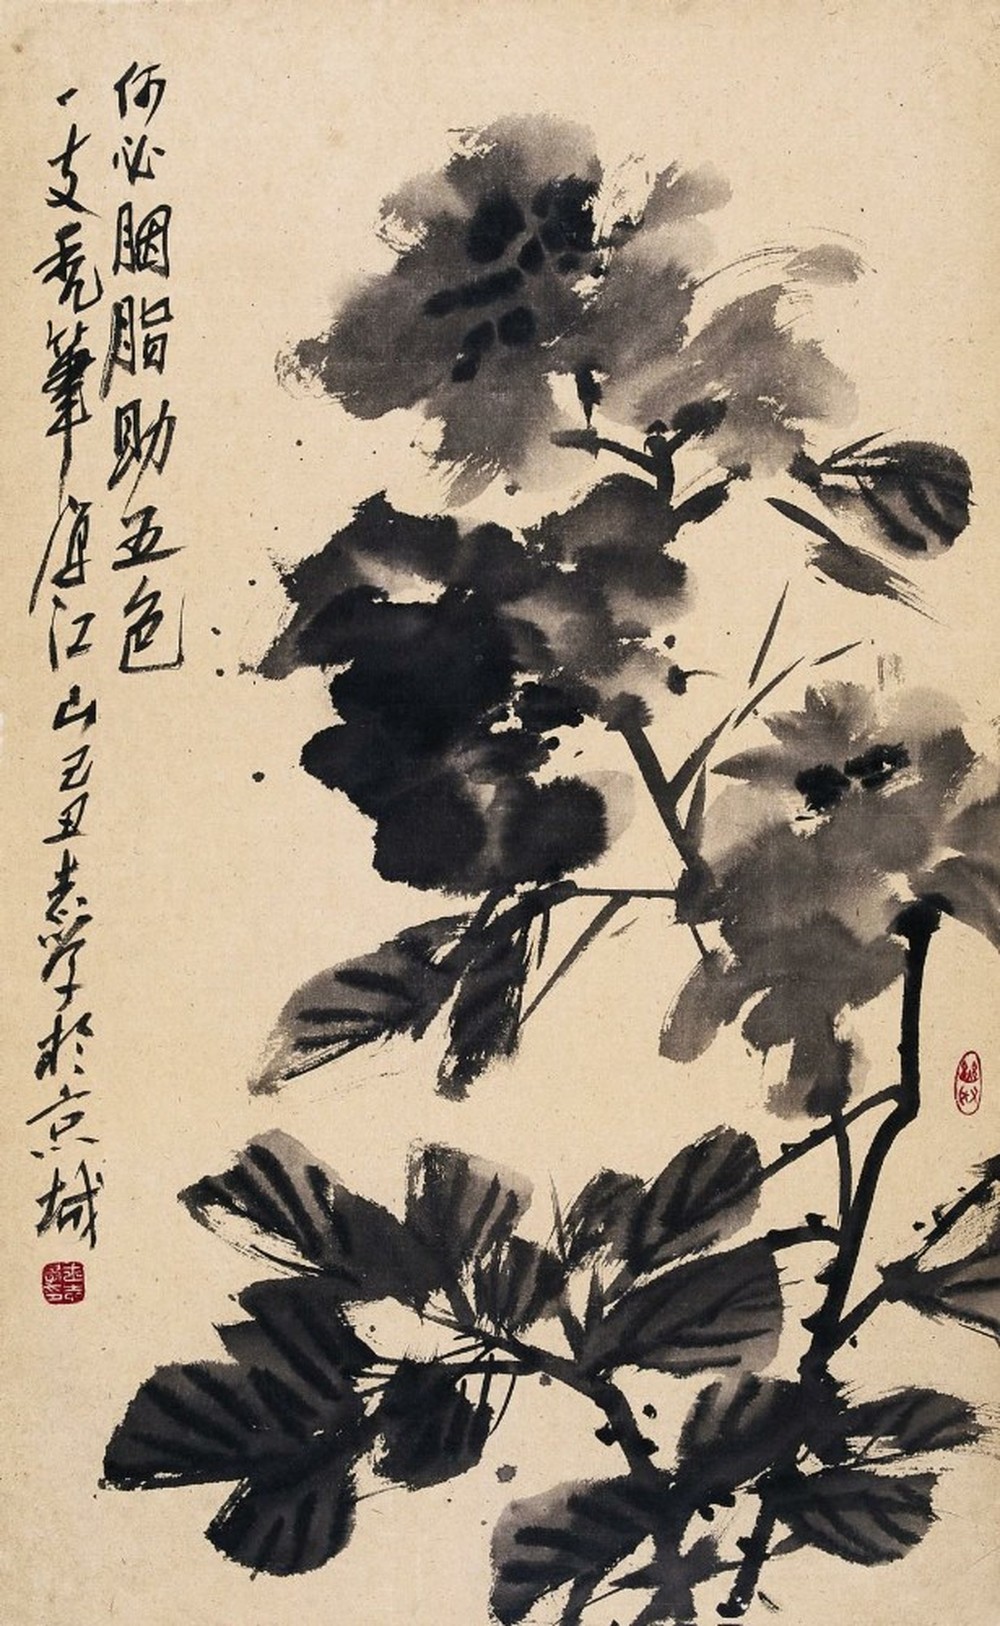 何必胭脂助五色
一支秃筆渲江山己丑志学於京城